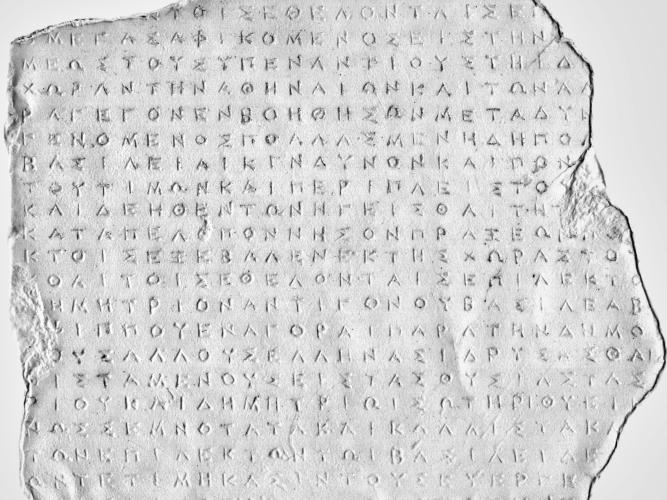 ΤΟΙΣΕΘΕΛΟΝΤΑΙΣΕ
ΜΕΓΑΣΑΦΙΚΟΜΕΝΟΣΕΙΣΤΗΝ
ΜΕΩΣΤΟΥΣΥΠΕΝΑΝΤΙΟΥΣΤΗΙΔ
ΧΩΡΑΝΤΗΝΑΘΗΝΑΙΩΝΚΑΙΤΩΝΑΛ
ΡΑΓΕΓΟΝΕΝΒΟΗΘΗΣΩΝΜΕΤΑΔΥ
ΓΕΝΟΜΕΝΟΣΠΟΛΛΑΣΜΕΝΗΔΗΠΟΛ
ΒΑΣΙΛΕΙΑΙΚΙΝΔΥΝΟΝΚΑΙΠΟΝ
ΤΟΥΤΙΜΩΝΚΑΙΠΕΡΙΠΛΕΙΣΤΟ
ΚΑΙΔΕΗΘΕΝΤΩΝΗΓΕΙΣΘΑΙΤΗ
ΚΑΤΑΠΕΛΟΠΟΝΝΗΣΟΝΠΡΑΞΕΩΝ
ΚΤΟΙΣΕΞΕΒΑΛΕΝΕΚΤΗΣΧΩΡΑΣΤΟ
ΟΛΙΤΟΙΣΕΘΕΛΟΝΤΑΙΣΕΠΙΛΕΚΤΟ
ΗΜΗΤΡΙΟΝΑΝΤΙΓΟΝΟΥΒΑΣΙΛΕΑΒ
ΙΠΠΟΥΕΝΑΓΟΡΑΙΠΑΡΑΤΗΝΔΗΜΟ
ΟΥΣΑΛΛΟΥΣΕΛΛΗΝΑΣΙΔΡΥΣΑΣΘΑΙ
ΙΣΤΑΜΕΝΟΥΣΕΙΣΤΑΣΘΥΣΙΑΣΤΑΣ
ΙΟΥΚΑΙΔΗΜΗΤΡΙΩΙΣΩΤΗΡΙΘΥΕΙ
ΝΩΣΣΕΜΝΟΤΑΤΑΚΑΙΚΑΛΛΙΣΤΑΚΑ
ΤΩΝΕΠΙΛΕΚΤΩΝΤΩΙΒΑΣΙΛΕΙΔΕ
ΩΝΤΕΤΙΜΗΚΑΣΙΝΤΟΥΣΕΥΕΡΓΕ